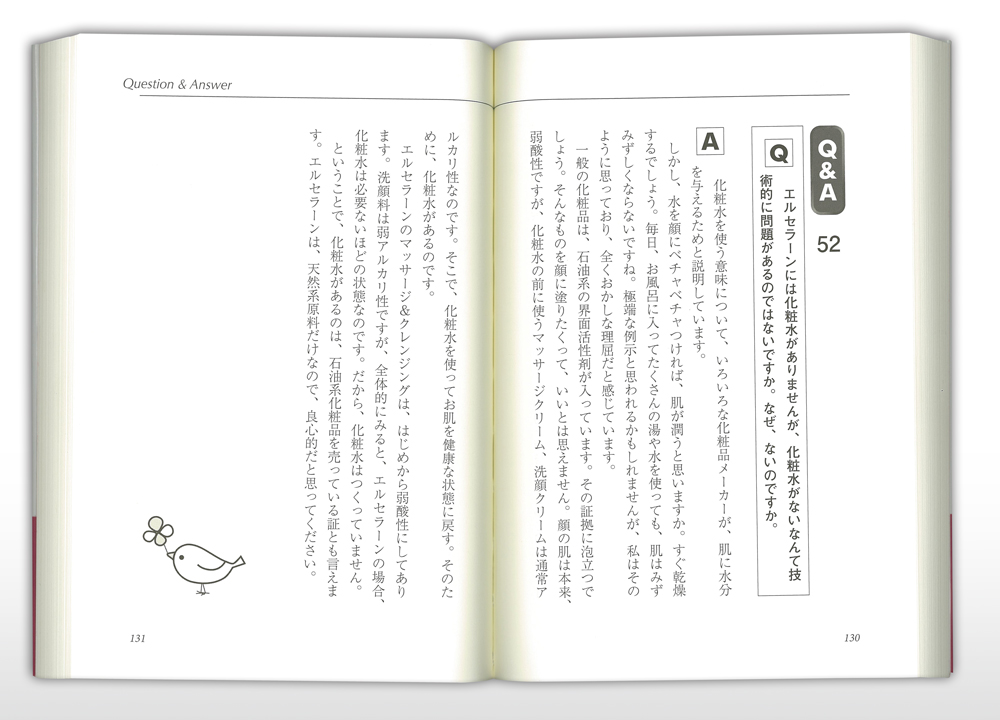 Q&A
52
Q
エルセラーンには化粧水がありませんが、化粧水がないなんて技
術的に問題があるのではないですか。なぜ、ないのですか。
A
化粧水を使う意味について、いろいろな化粧品メーカーが、肌に水分
を与えるためと説明しています。
しかし、水を顔にベチャベチャつければ、肌が潤うと思いますか。すぐ乾燥
するでしょう。毎日、お風呂に入ってたくさんの湯や水を使っても、肌はみず
みずしくならないですね。極端な例示と思われるかもしれませんが、私はその
ように思っており、全くおかしな理屈だと感じています。
一般の化粧品は、石油系の界面活性剤が入っています。その証拠に泡立つで
しょう。そんなものを顔に塗りたくって、いいとは思えません。顔の肌は本来、
弱酸性ですが、化粧水の前に使うマッサージクリーム、洗顔クリームは通常ア
130
Question & Answer
ルカリ性なのです。そこで、化粧水を使ってお肌を健康な状態に戻す。そのた
めに、化粧水があるのです。
エルセラーンのマッサージ&クレンジングは、はじめから弱酸性にしてあり
ます。洗顔料は弱アルカリ性ですが、全体的にみると、エルセラーンの場合、
化粧水は必要ないほどの状態なのです。だから、化粧水はつくっていません。
ということで、化粧水があるのは、石油系化粧品を売っている証とも言えま
す。エルセラーンは、天然系原料だけなので、良心的だと思ってください。
131